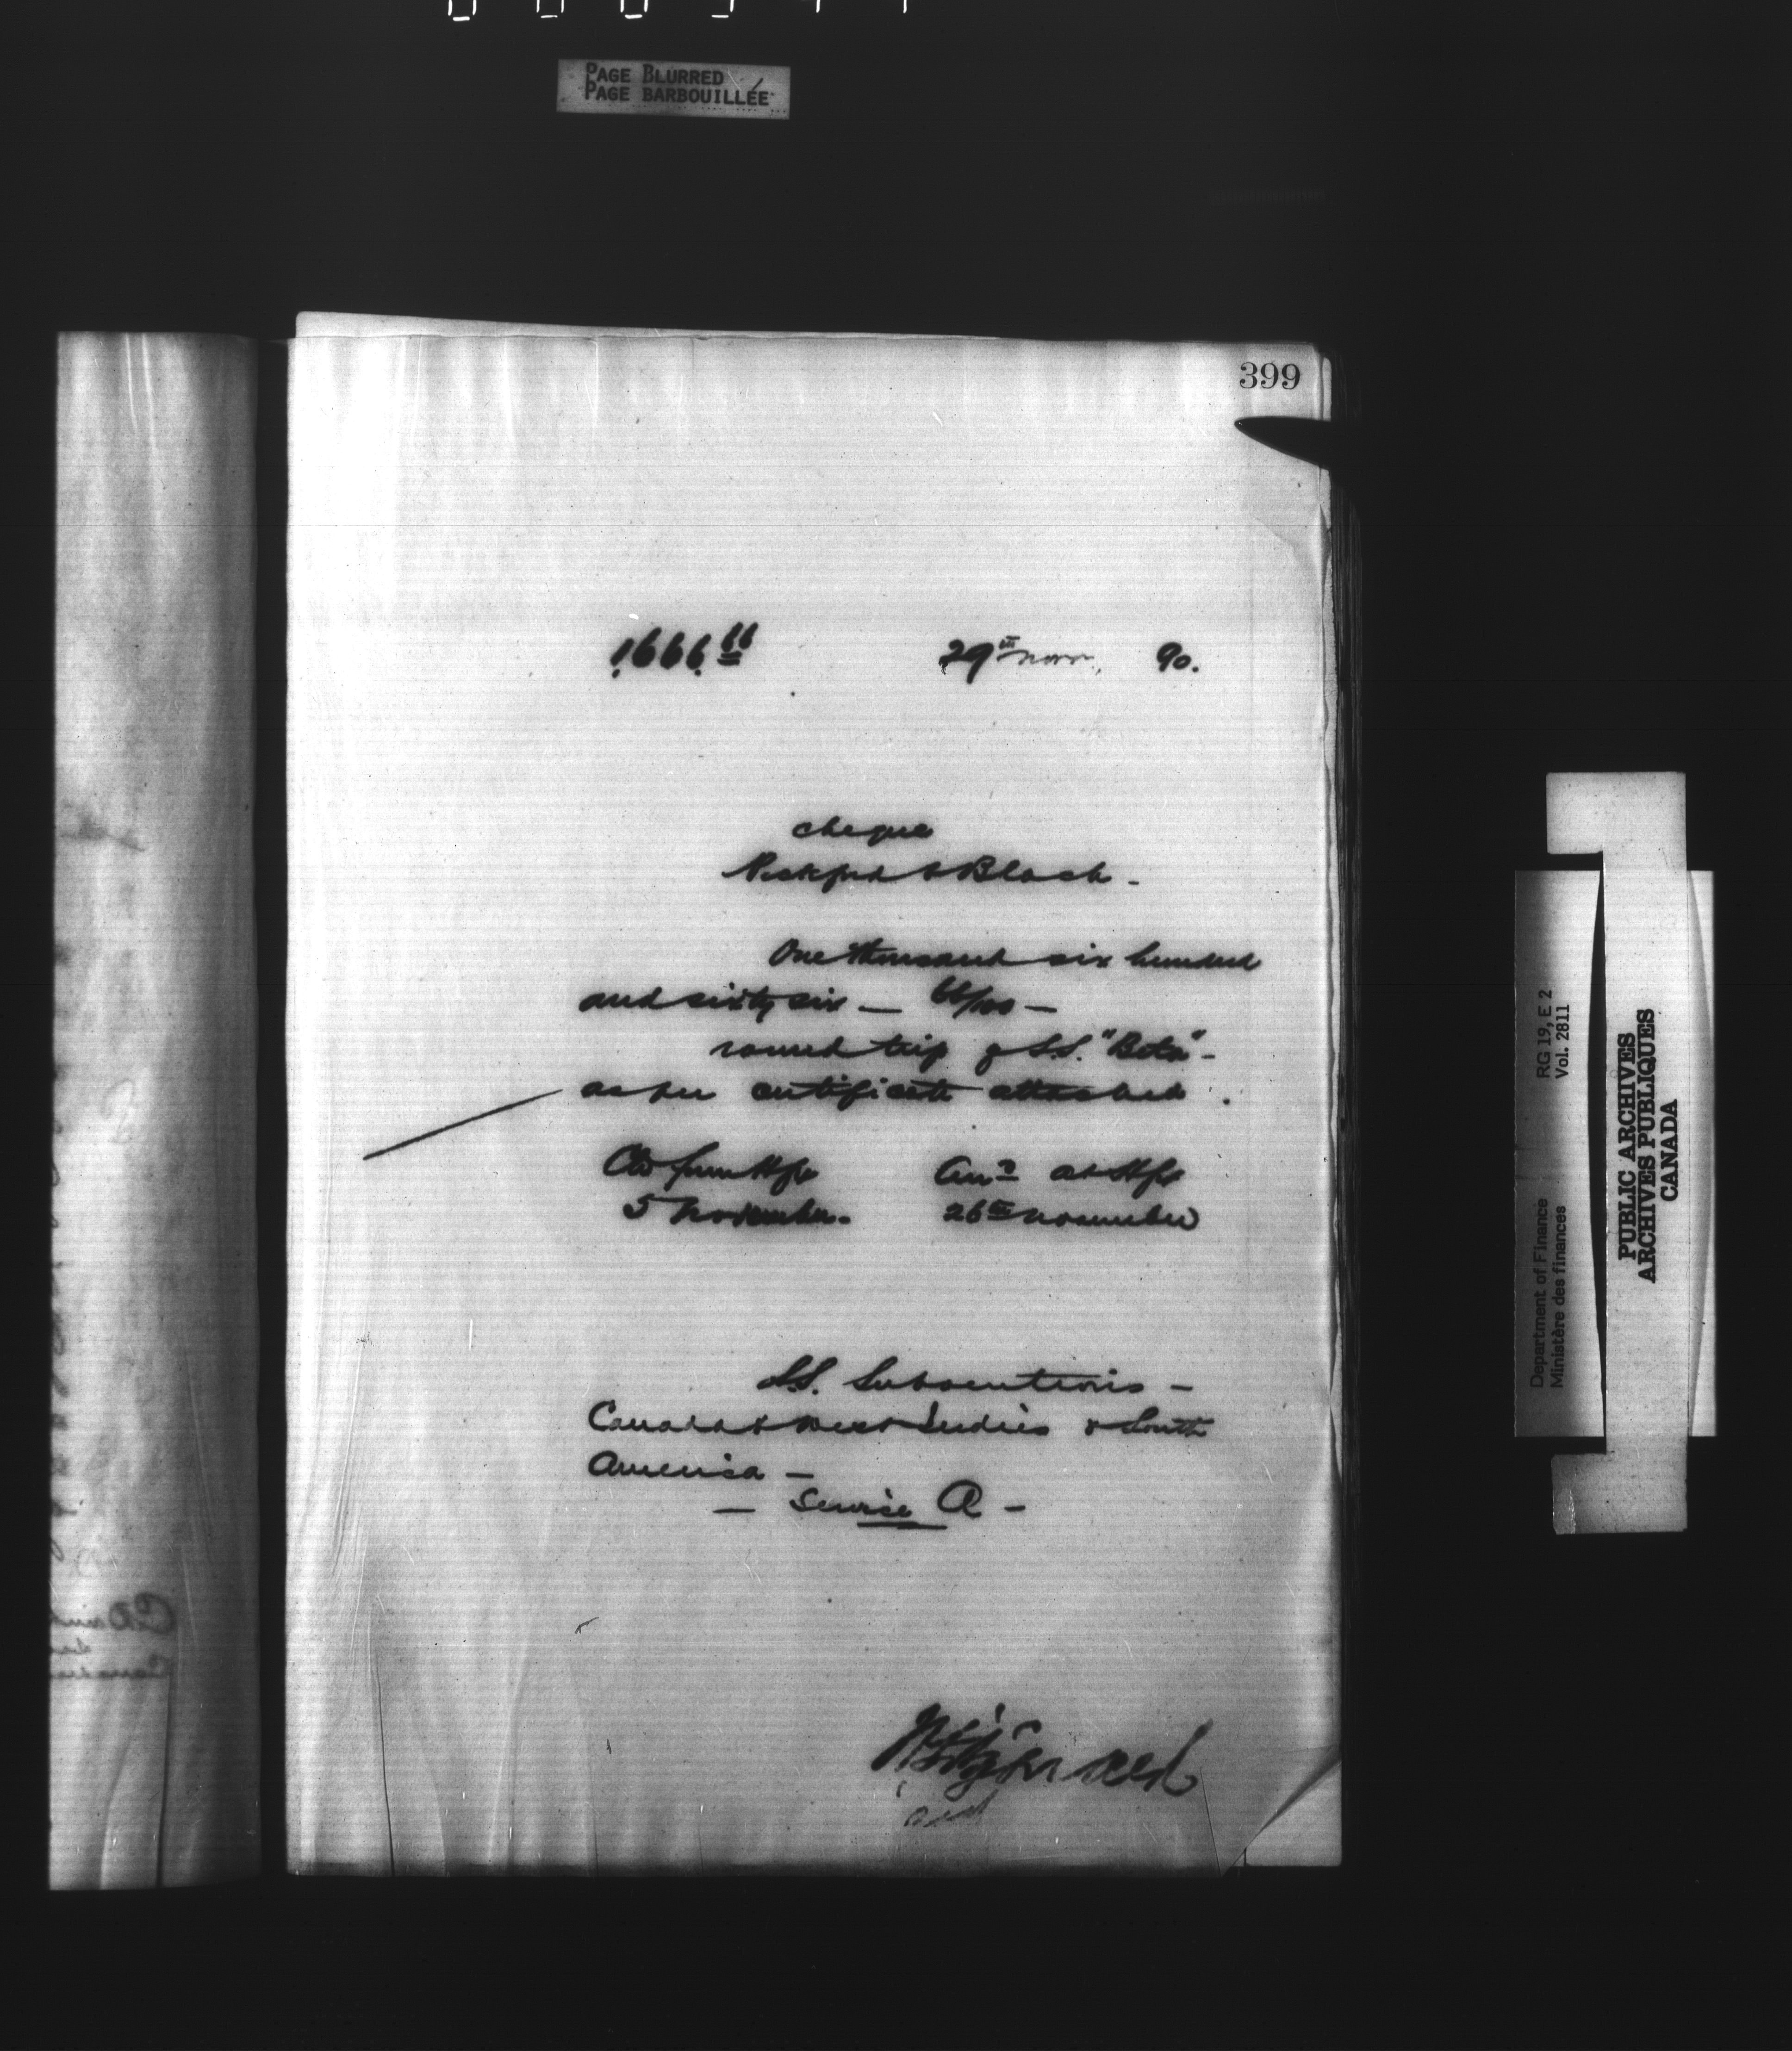 PAGE BLURRED
PAGE BARBOUILLÉE
399
1666.66 29th Novr. 90.
cheque
Pickford & Black -
One thousand six hundred
and sixty six — 66/100 —
round trip of S.S. "Beta" -
as per certificate attached.
Cld from Hfx Arrd at Hfx
5 November. 26th November
S.S. Subventions -
Canada & West Indies & South
America -
- Service A -
Department of Finance RG 19, E 2
Ministère des finances Vol. 2811
PUBLIC ARCHIVES
ARCHIVES PUBLIQUES
CANADA